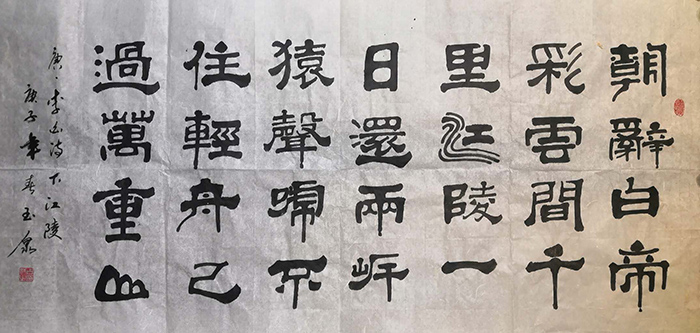 朝辭白帝
彩雲間千
里江陵一
日還兩岸
猿聲啼不
住輕舟已
過萬重山
唐·李白詩下江陵
庚子年春玉泉